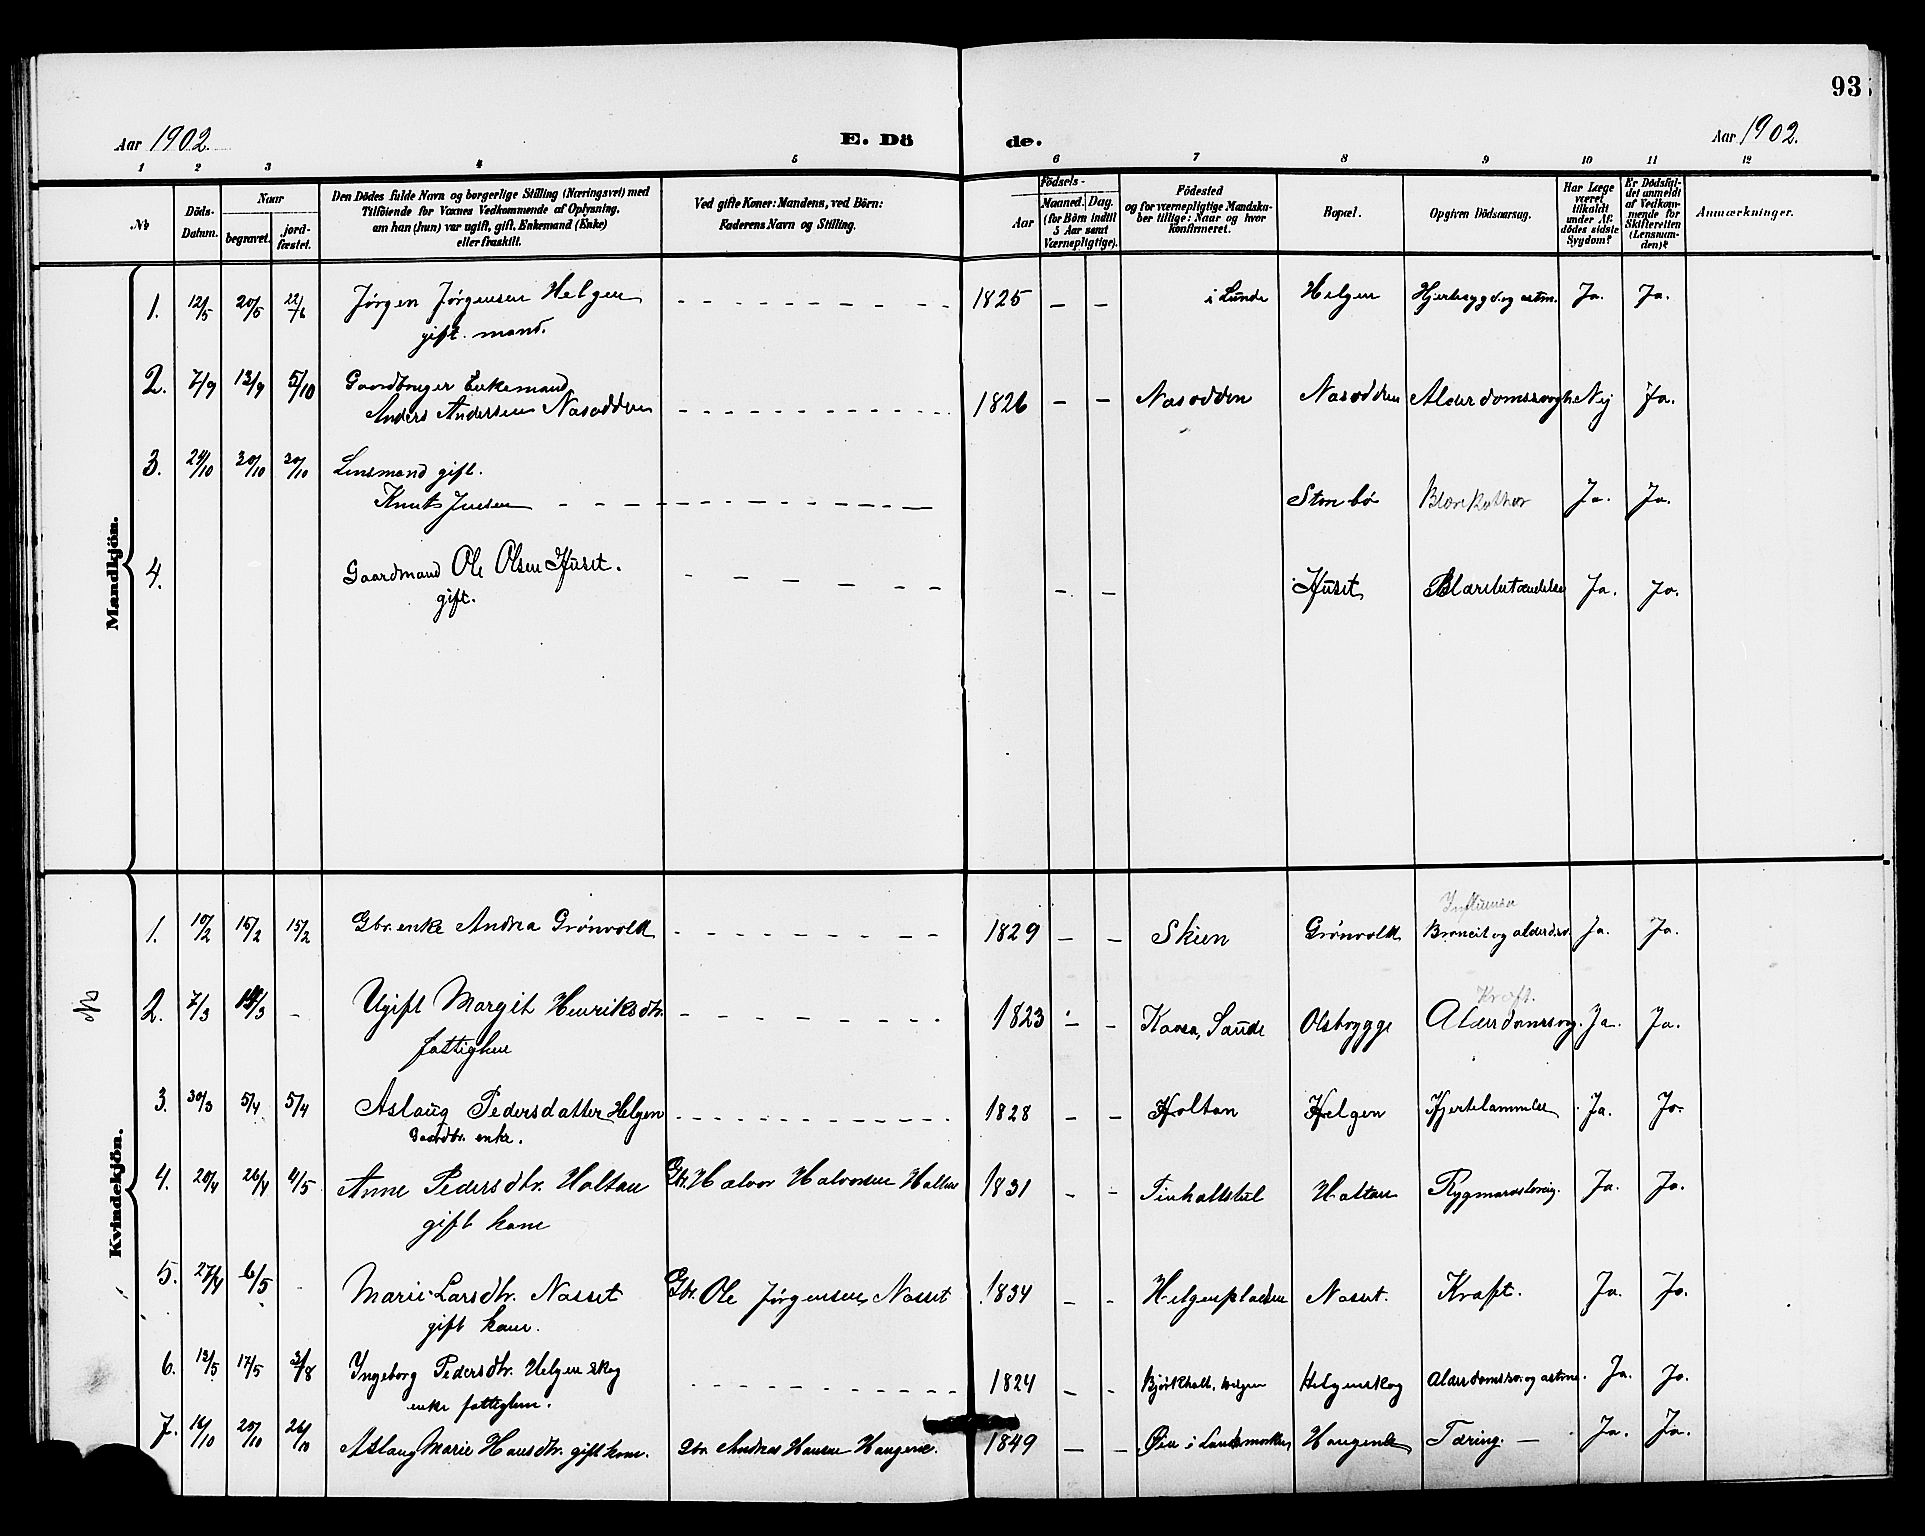 93
Aar 1902.
E. Dö de.
Aar 1902.
1 2 3 4 5 6 7 8 9 10 11 12
No
Döds-
Datum.
Naar
begravet.
jord-
fæstet.
Den Dödes fulde Navn og borgerlige Stilling (Næringsvei) med
Tilföiende for Voxnes Vedkommende af Oplysning,
om han (hun) var ugift, gift, Enkemand (Enke)
eller fraskilt.
Ved gifte Koner: Mandens, ved Börn:
Faderens Navn og Stilling.
Födsels-
Aar
Maaned. Dag.
(for Börn indtil
5 Aar samt
Værnepligtige).
Födested
og for værnepligtige Mandska-
ber tillige: Naar og hvor
konfirmeret.
Bopæl.
Opgiven Dödsaarsag.
Har Læge
været
tilkaldt
under Af-
dödes sidste
Sygdom?
Er Dödsfal-
det anmeldt
af Vedkom-
mende for
Skifteretten
(Lensman-
den)?
Anmærkninger.
Mandkjön.
1. 12/5 20/5 22/6 Jørgen Jørgensen Helgen 1825 – – i Lunde Helgen Hjertesygd. og astm. Ja. Ja.
gift mand.
2. 7/9 13/9 5/10 Gaardbruger Enkemand
Anders Andersen Næsodden 1826 – – Næsodden Næsodden Alderdomssvagh. Nej Ja.
3. 24/10 30/10 30/10 Lensmand gift.
Knut Jensen Stenbö Blærekathar Ja. Ja.
4. Gaardmand Ole Olsen Huset. – – Huset Blærebetændelse Ja. Ja.
gift.
Kvindekjön.
No
Influensa
1. 10/2 15/2 15/2 Gbr. enke Andrea Grönvold 1829 – – Skien Grönvold Broncit og alderdsv. Ja. Ja.
Kræft.
2. 7/3 /3 – Ugift Margit Henriksdtr. 1823 – – Saude Olsbrygge Alderdomssvag. Ja. Ja.
fattiglem
3. 30/3 5/4 5/4 Aslaug Pedersdatter Helgen 1828 – – Holtan Helgen Hjertelammelse Ja. Ja.
Gaardbr. enke.
4. 20/4 26/4 4/5 Anne Pedersdtr. Holtan Gbr. Halvor Halvorsen Holtan 1831 – – Tinholtstul Holtan Rygmarvslidelse. Ja. Ja.
gift kone
5. 27/4 6/5 – Marie Larsdtr. Næset Gbr. Ole Jørgensen Næset 1834 – – Helgenpladsen Næset. Kræft. Ja. Ja.
gift kone.
6. 13/5 17/5 3/8 Ingeborg Pedersdtr. Helgenskog 1824 – – Bjørkholt, Helgen Helgenskog Alderdomssv. og astma. Ja. Ja.
enke fattiglem.
7. 16/10 20/10 26/10 Aslaug Marie Hansdtr. gift kone. Gbr. Andreas Hansen Haugene. 1849 – – Øen i Landsmarken Haugene Tæring. – Ja. Ja.